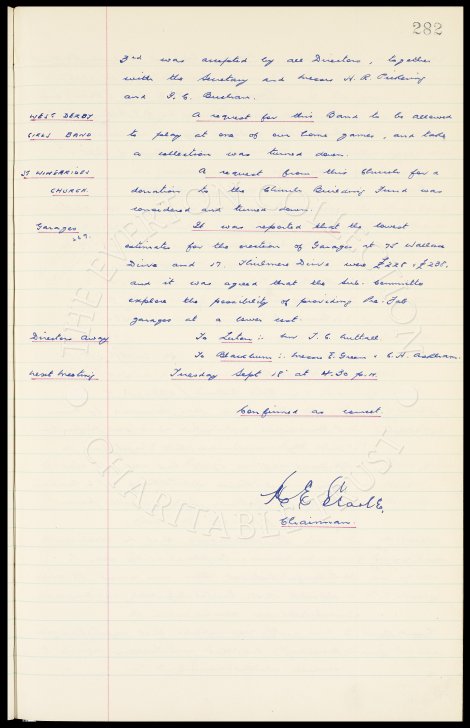 282
3rd was accepted by all Directors, together
with the Secretary and Messrs H. R. Pickering
and
WEST DERBY
GIRLS BAND
A request for this Band to be allowed
to play at one of our home games, and take
a collection was turned down.
ST WINEFRIDES
CHURCH.
A request from this Church for a
donation to the Church Building Fund was
considered and turned down.
Garages
It was reported that the lowest
estimates for the erection of Garages at 75 Wallace
Drive and 17 Thirlmere Drive were £225 & £235.
and it was agreed that the Sub. Committee
explore the possibility of providing Pre. Fab
garages at a lower cost.
Directors Away
To Luton :- Mr T. C. Nuttall.
To Blackburn :- Messrs E. Green & C. H. Askham.
Next Meeting
Tuesday Sept 18th at 4.30 p.m.
Confirmed as correct
Chairman.
THE EVERTON COLLECTION
CHARITABLE TRUST